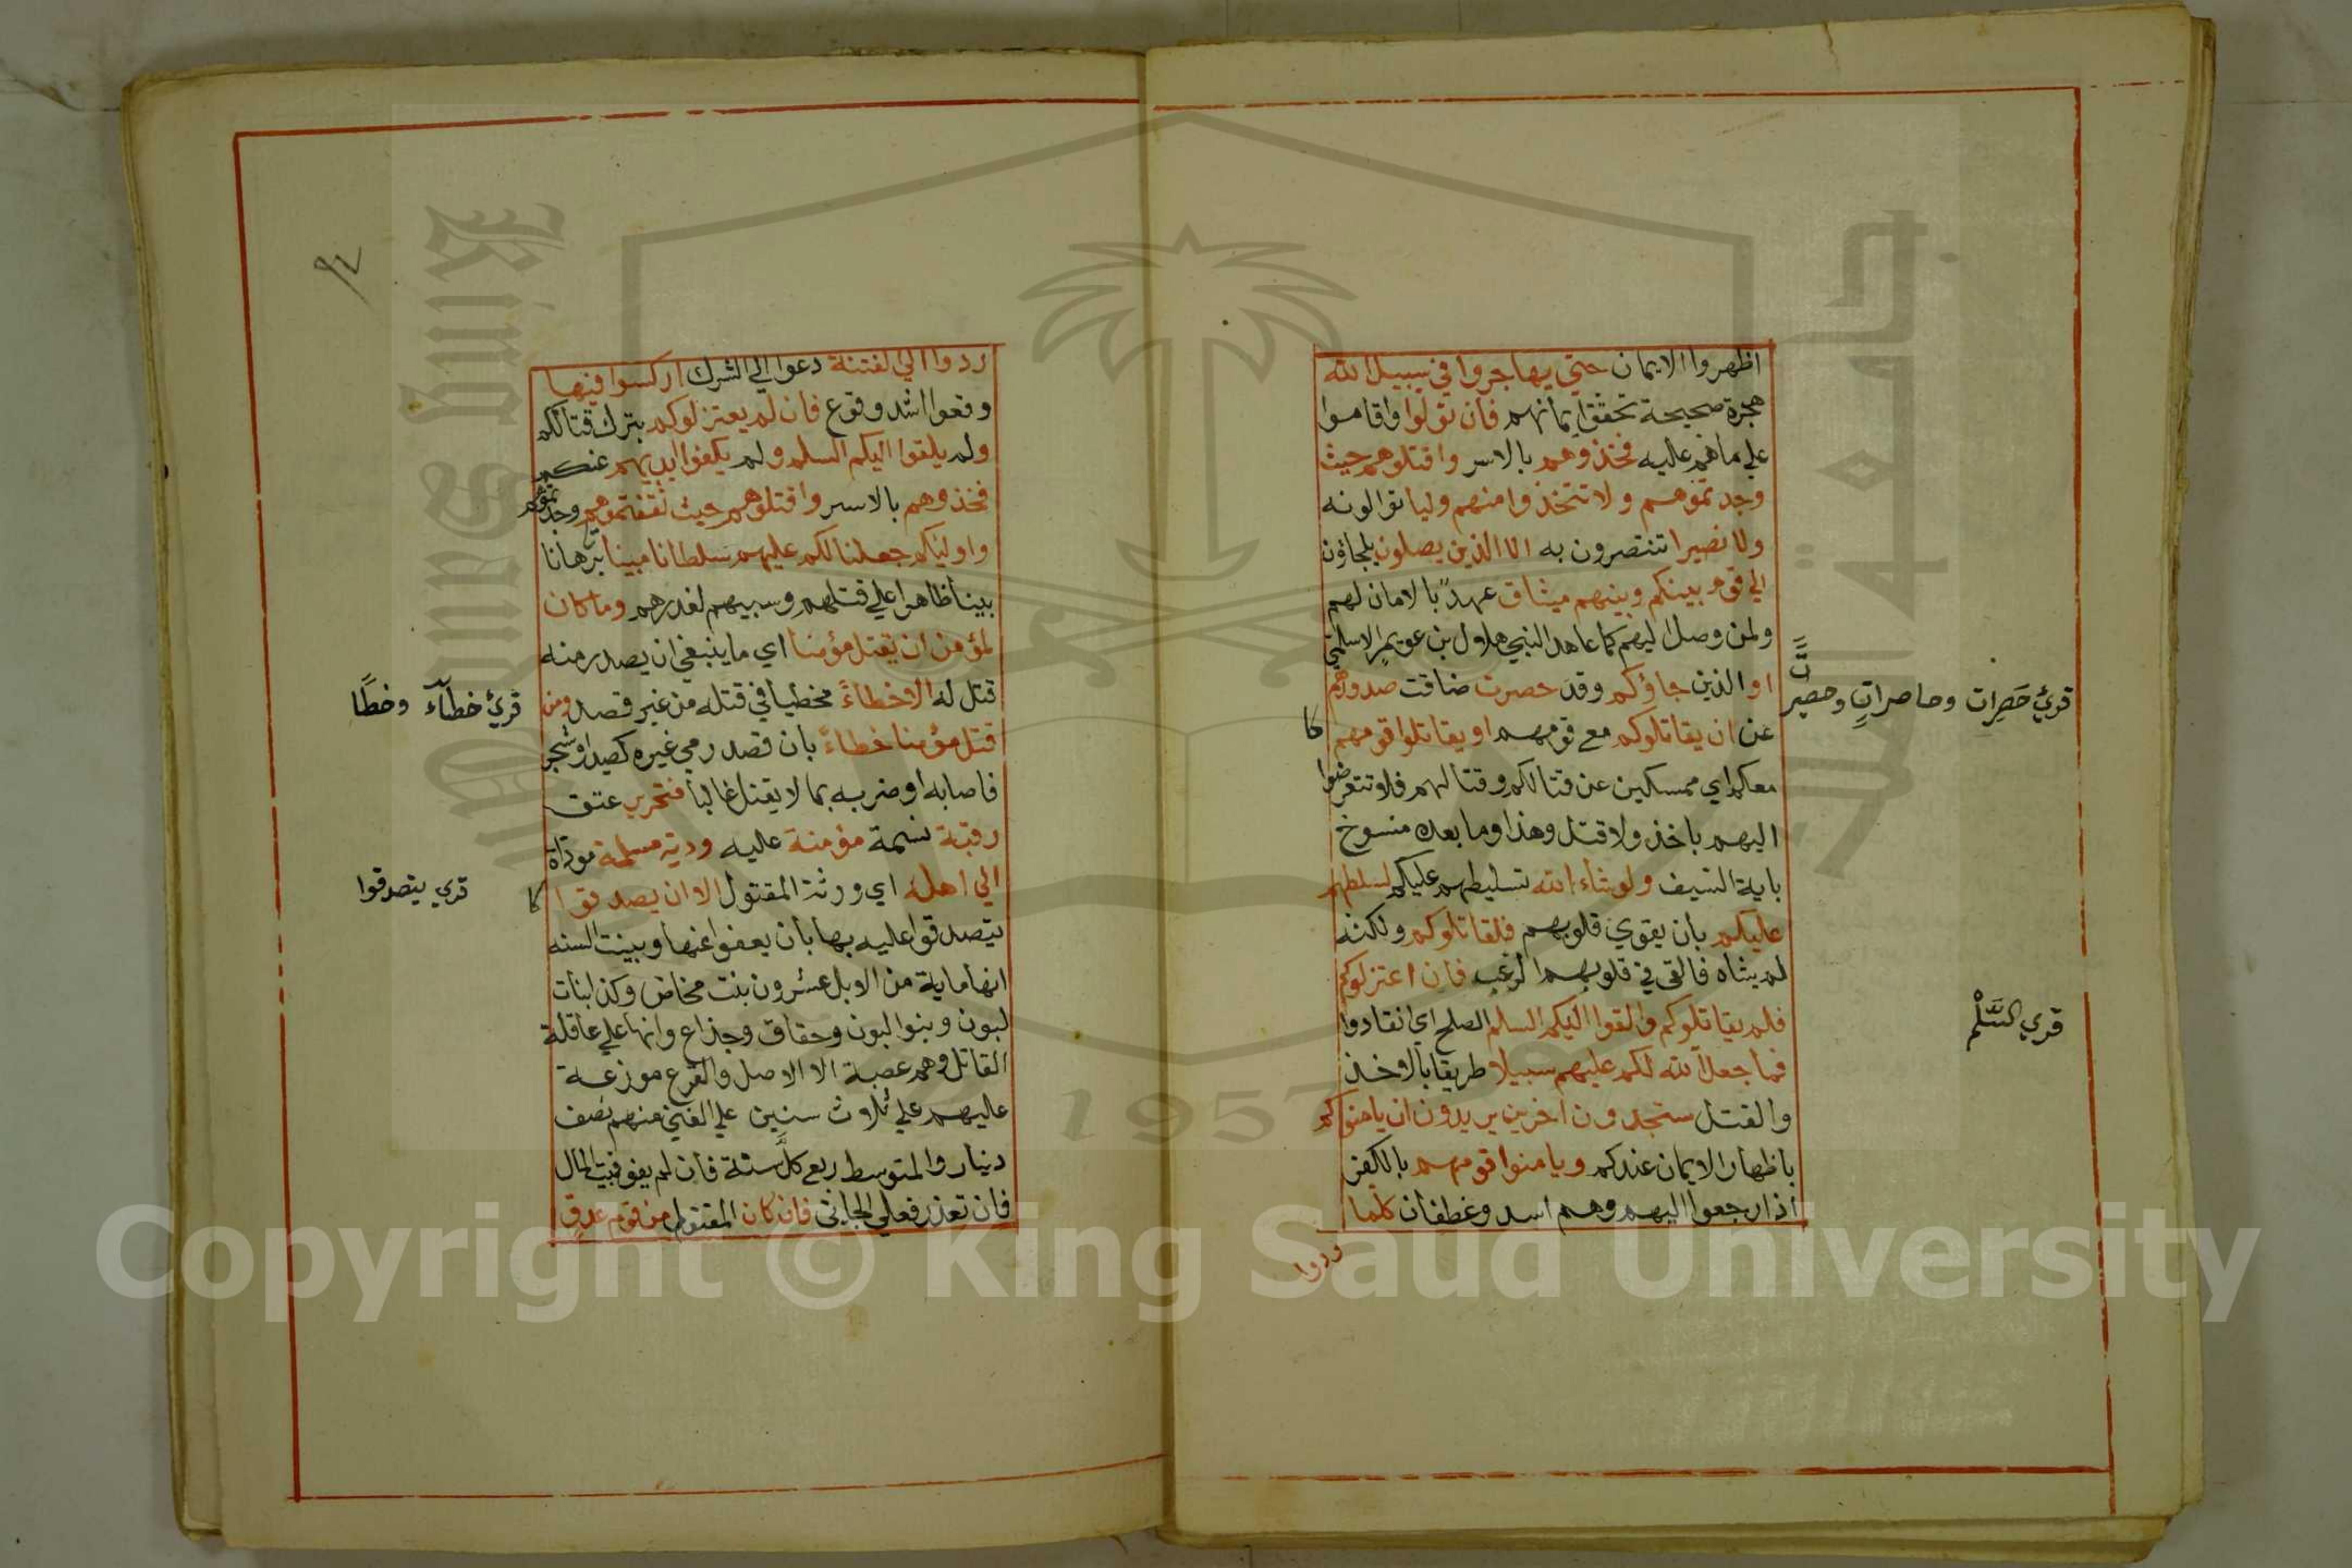 اظهروا الايمان حتي يهاجروا في سبيل الله
هجرة صحيحة تحقق ايمانهم فان تولوا واقاموا
علي ماهم عليه فخذوهم بالاسر واقتلوهم حيث
وجدتموهم ولا تتخذوا منهم وليا توالونه
ولا نصيرا تنتصرون به الا الذين يصلون يلجاؤن
الي قوم بينكم وبينهم ميثاق عهد بالامان لهم
ولمن وصل اليهم كما عاهد النبي هلال بن عويمر الاسلمي
او الذين جاؤكم وقد حصرت ضاقت صدورهم
عن ان يقاتلوكم مع قومهم او يقاتلوا قومهم
معكم اي ممسكين عن قتالكم وقتالهم فلا تتعرضوا
اليهم باخذ ولا قتل وهذا وما بعده منسوخ
باية السيف ولو شاء الله تسليطهم عليكم لسلطهم
عليكم بان يقوي قلوبهم فلقاتلوكم ولكنه
لم يشاه فالقي في قلوبهم الرعب فان اعتزلوكم
فلم يقاتلوكم والقوا اليكم السلم الصلح اي انقادوا
فما جعل الله لكم عليهم سبيلا طريقا بالاخذ
والقتل ستجدون اخرين يريدون ان يامنوكم
باظهار الايمان عندكم ويامنوا قومهم بالكفر
اذا رجعوا اليهم وهم اسد وغطفان كلما
ردوا
قرئ حَصِرات وحاصراتٍ وحصر
كا
قري السَّلْم
٩٧
ردوا الي الفتنة دعوا الي الشرك اركسوا فيها
وقعوا اشد وقوع فان لم يعتزلوكم بترك قتالكم
ولم يلقوا اليكم السلم ولم يكفوا ايديهم عنكم
فخذوهم بالاسر واقتلوهم حيث ثقفتموهم وجدتموهم
واوليكم جعلنا لكم عليهم سلطانا مبينا برهانا
بينا ظاهرا علي قتلهم وسبيهم لغدرهم وما كان
لمؤمن ان يقتل مؤمنا اي ما ينبغي ان يصدر منه
قتل له الا خطاءً مخطيا في قتله من غير قصد ومن
قتل مؤمنا خطاءً بان قصد رمي غيره كصيد او شجر
فاصابه او ضربه بما لا يقتل غالبا فتحرير عتق
رقبة نسمة مؤمنة عليه ودية مسلمة موداة
الي اهله اي ورثة المقتول الا ان يصدقوا
يتصدقوا عليه بها بان يعفوا عنها وبينت السنه
انها ماية من الابل عشرون بنت مخاض وكذا بنات
لبون وبنوا لبون وحقاق وجذاع وانها علي عاقلة
القاتل وهم عصبة الا الاصل والفرع موزعة
عليهم علي ثلاث سنين علي الغني منهم نصف
دينار والمتوسط ربع كل سنة فان لم يفو فبيت المال
فان تعذر فعلي الجاني فان كان المقتول من قوم عدو
قرئ خطآء وخطًا
قري يتصدقوا
كا
King Saud University
جامعة الملك سعود
1957
Copyright © King Saud University